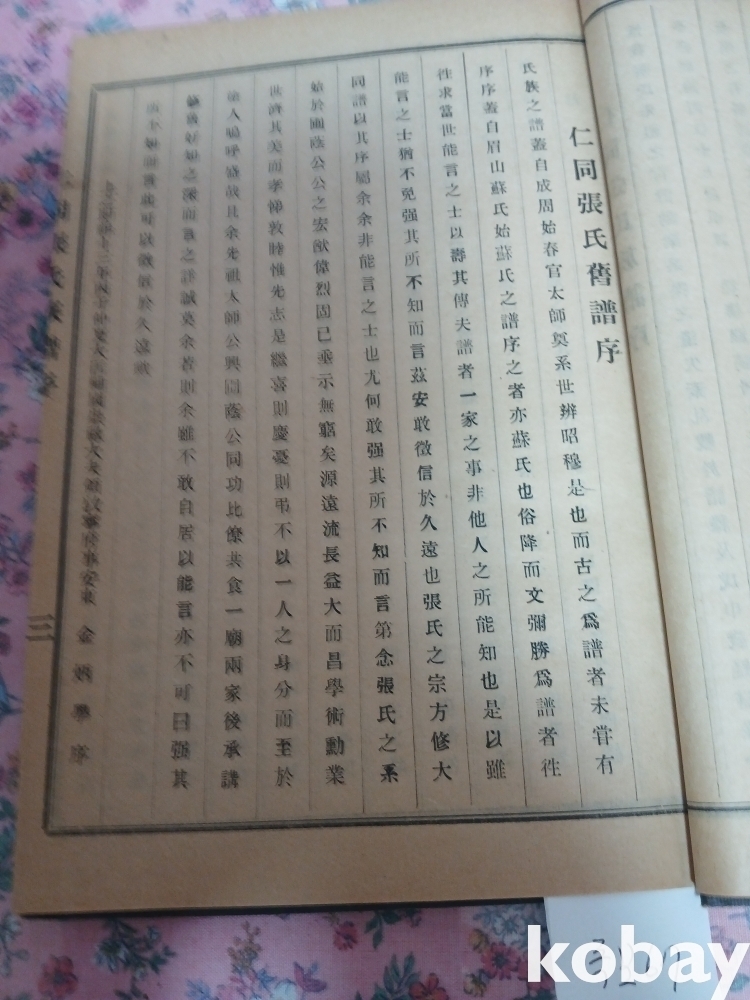 仁同張氏舊譜序
氏族之譜蓋自成周始春官太師奠系世辨昭穆是也而古之爲譜者未甞有
序序蓋自眉山蘇氏始蘇氏之譜序之者亦蘇氏也俗降而文彌勝爲譜者徃
徃求當世能言之士以壽其傳夫譜者一家之事非他人之所能知也是以雖
能言之士猶不免强其所不知而言茲安敢徵信於久遠也張氏之宗方修大
同譜以其序屬余余非能言之士也尤何敢强其所不知而言第念張氏之系
始於圃蔭公公之宏猷偉烈固已垂示無窮矣源遠流長益大而昌學術勳業
世濟其美而孝悌敦睦惟先志是繼喜則慶憂則弔不以一人之身分而至於
人嗚呼盛哉且余先祖太師公與蔭公同功比僚共食一廟兩家後承講
好如之深而之詳誠莫余若則余雖不敢自居以能言亦不可曰强其
所不知而言或可以徵信於久遠歟
安東 金 學 序
三
kobay